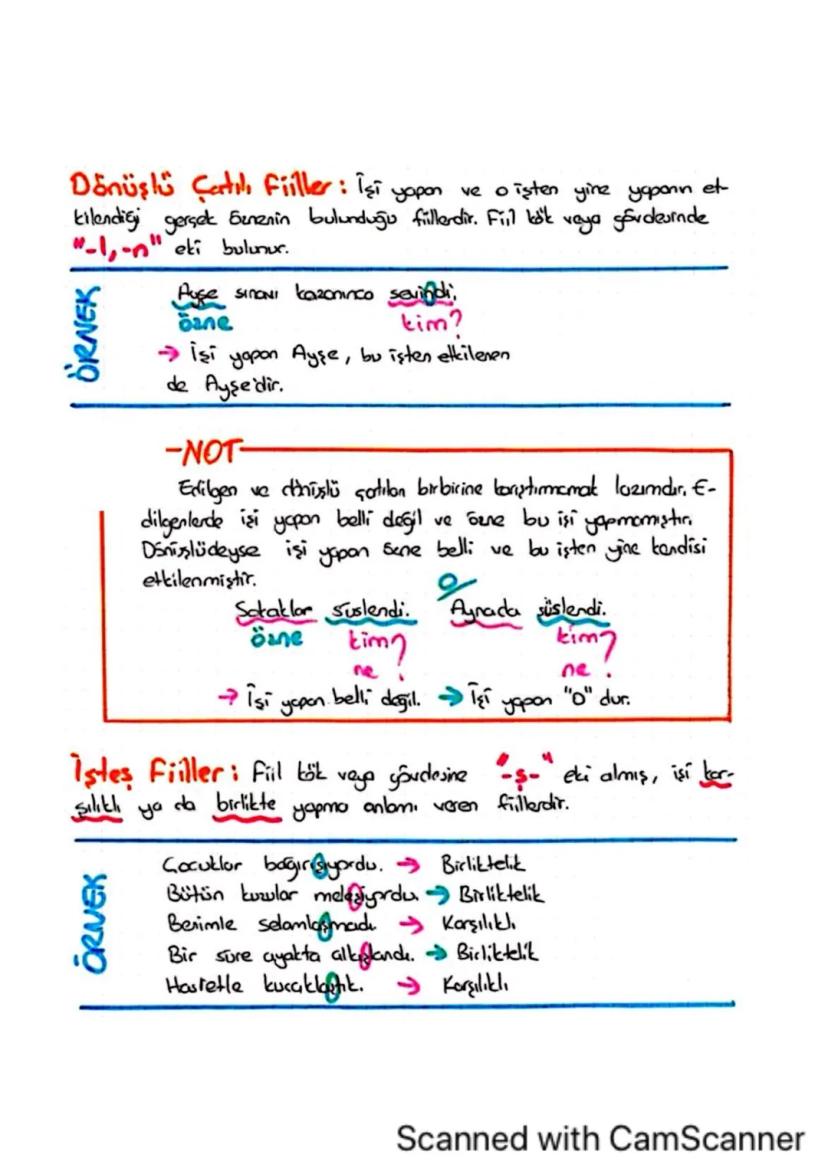 Dönüşlü Çatılı Fiiller: İşi yapan ve o işten yine yapanın et-
kilendiği gerçek öznenin bulunduğu fiillerdir. Fiil kök veya gövdesinde
"-l, -n" eki bulunur.
ÖRNEK
Ayşe sınavı kazanınca sevindi.
özne kim?
→ İşi yapan Ayşe, bu işten etkilenen
de Ayşe'dir.
-NOT
Edilgen ve dönüşlü çatıları birbirine karıştırmamak lazımdır. E-
dilgenlerde işi yapan belli değil ve özne bu işi yapmamıştır.
Dönüşlüdeyse işi yapan özne belli ve bu işten yine kendisi
etkilenmiştir.
O
Sokaklar süslendi. Aynada süslendi.
özne kim? kim?
ne ne
→ İşi yapan belli değil. → İşi yapan "O" dur.
İşteş Fiiller: Fiil kök veya gövdesine "-ş-" eki almış, işi kar-
şılıklı ya da birlikte yapma anlamı veren fiillerdir.
ÖRNEK
Çocuklar bağırışıyordu. → Birliktelik
Bütün kuzular meleşiyordu. → Birliktelik
Benimle selamlaşmadı. → Karşılıklı
Bir süre ayakta alkışlandı. → Birliktelik
Hasretle kucaklaştık. → Karşılıklı
Scanned with CamScanner